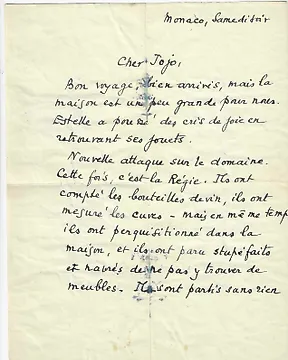 Monaco, Samedi soir
Cher Jojo,
Bon voyage, bien arrivés, mais la
maison est un peu grande pour nous.
Estelle a poussé des cris de joie en
retrouvant ses jouets.
Nouvelle attaque sur le domaine.
Cette fois, c'est la Régie. Ils ont
compté les bouteilles de vin, ils ont
mesuré les cuves - mais en même temps
ils ont perquisitionné dans la
maison, et ils ont paru stupéfaits
et navrés de ne pas y trouver de
meubles - Ils sont partis sans rien